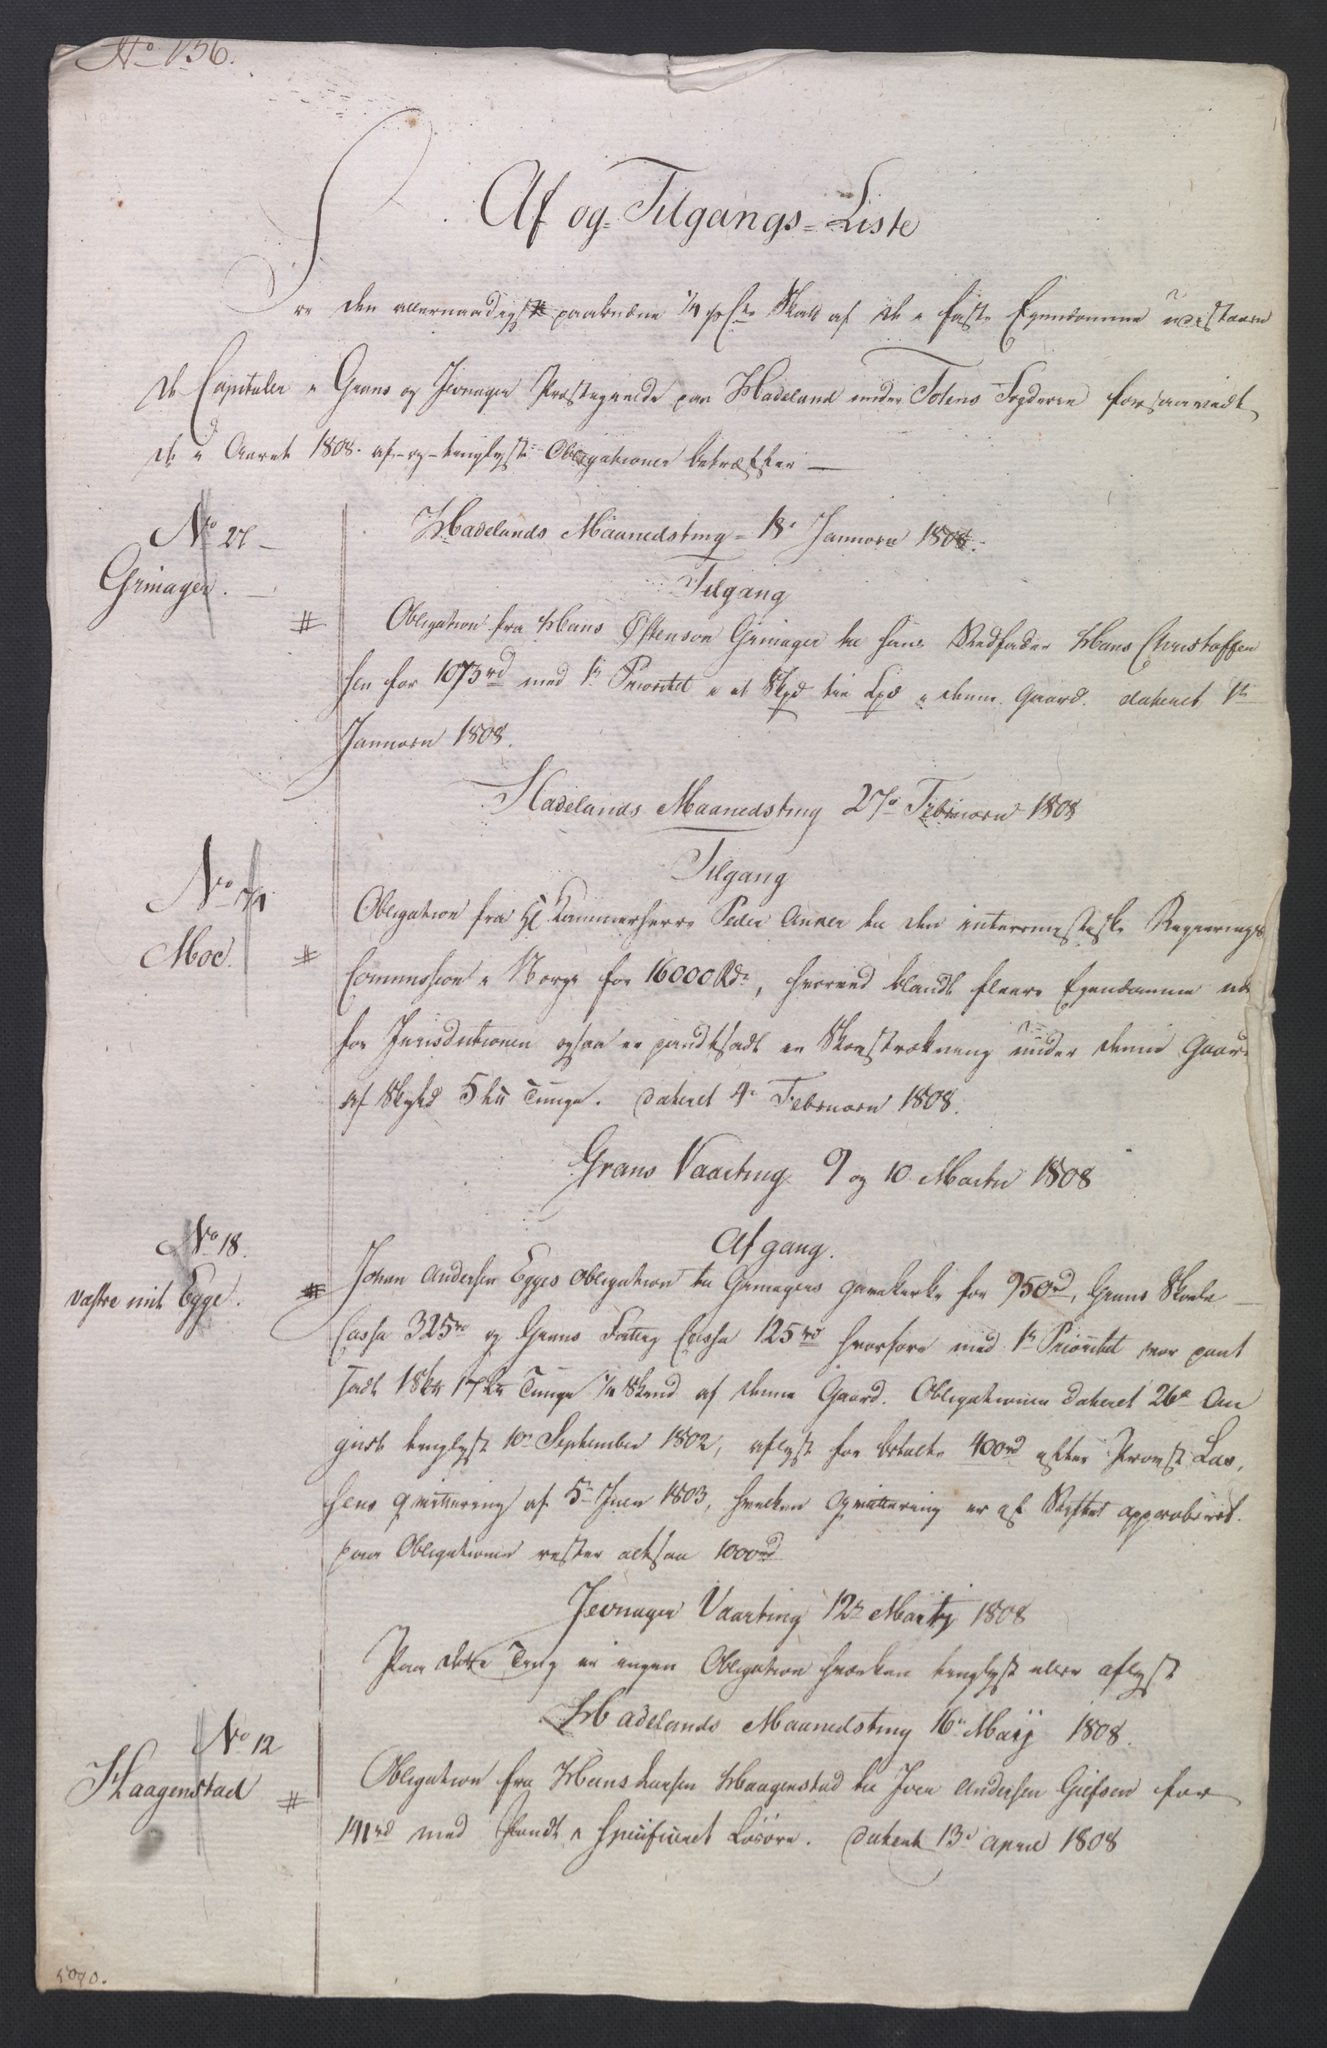 No 156.
Af og Tilgangs-Liste
over den allernaadigst paabudne 1/4 pCto Skatt af de i faste Eyendomme udestaaen
de Capitaler i Grans og Jevnager Præstegielde paa Hadeland under Totens Fogderie forsaavidt
de i Aaret 1808 af- og tinglyste Obligationer betræffer
No 27
Grinager.
Hadelands Maanedsting 18de Januarii 1808.
Tilgang
Obligation fra Hans Østenson Grinager til hans Stedfader Hans Christoffer
sen for 1073 rd med 1te Prioritet i et Skpd tie Lpd i denne Gaard. dateret 1te
Januarii 1808.
Hadelands Maanedsting 27de Februarii 1808
Tilgang
No
Moe
Obligation fra Hl Kammerherre Peder Anker til den interimistiske Regierings
Commission i Norge for 16000 Rdr, hvorved blandt fleere Eyendomme uden
for Jurisdictionen ogsaa er pandtsadt en Skovstrækning under denne Gaard
af Skyld 5 hr Tunge. dateret 4de Februarii 1808.
Grans Vaarting 9 og 10 Martii 1808
Afgang.
No 18.
vestre mit Egge.
Johan Andersen Egges Obligation til Grinagers Gavekirke for 950 rd, Grans Skole
Cassa 325 rd og Grans Fattig Cassa 125 rd hvorfore med 1te Prioritet var pant
sadt 17 Tunge Skind af denne Gaard. Obligationen dateret 26de Au
gust tinglyst 10de September 1802, aflyst for betalte 400 rd efter Provst Las,
sens qvittering af 5te Juni 1803, hvilken qvittering er af Stiftet approberet.
paa Obligationen rester altsaa 1000 rd
Jevnager Vaarting 12te Martij 1808
Paa dette Ting er ingen Obligation hverken tinglyst eller aflyst
Hadelands Maanedsting 16de Maij 1808.
No 12
Haagenstad
Obligation fra Hans Larsen Haagenstad til Iver Andersen Giefsen for
191 rd med Pandt i Specificeret Løsøre. dateret 13de April 1808